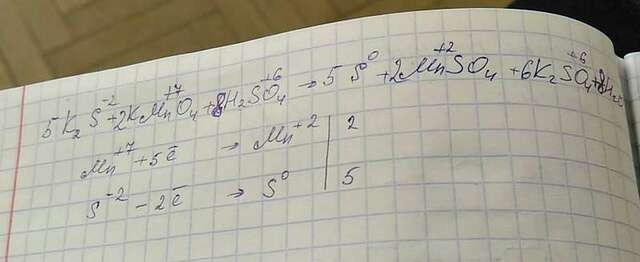 5K₂S⁻² + 2KMn⁺⁷O₄ + 8H₂S⁺⁶O₄ → 5S⁰ + 2Mn⁺²SO₄ + 6K₂S⁺⁶O₄ + 8H₂O
Mn⁺⁷ + 5ē → Mn⁺² | 2
S⁻² - 2ē → S⁰ | 5